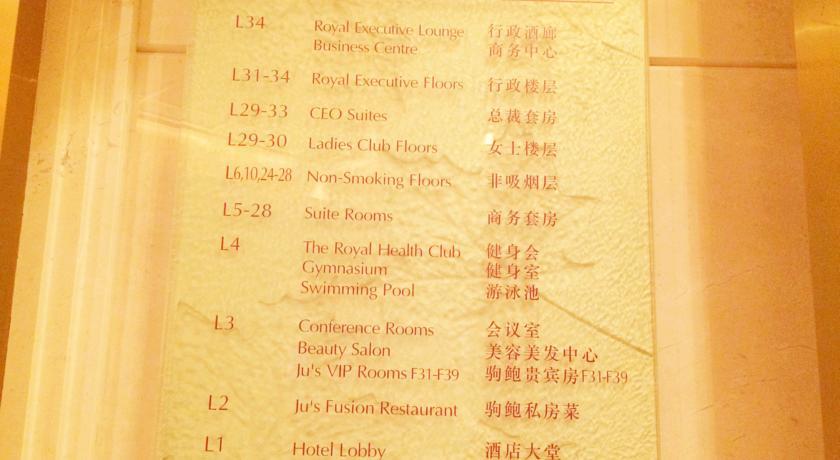 L34 Royal Executive Lounge 行政酒廊
Business Centre 商务中心
L31-34 Royal Executive Floors 行政楼层
L29-33 CEO Suites 总裁套房
L29-30 Ladies Club Floors 女士楼层
L6,10,24-28 Non-Smoking Floors 非吸烟层
L5-28 Suite Rooms 商务套房
L4 The Royal Health Club 健身会
Gymnasium 健身室
Swimming Pool 游泳池
L3 Conference Rooms 会议室
Beauty Salon 美容美发中心
Ju's VIP Rooms F31-F39 驹鲍贵宾房F31-F39
L2 Ju's Fusion Restaurant 驹鲍私房菜
L1 Hotel Lobby 酒店大堂